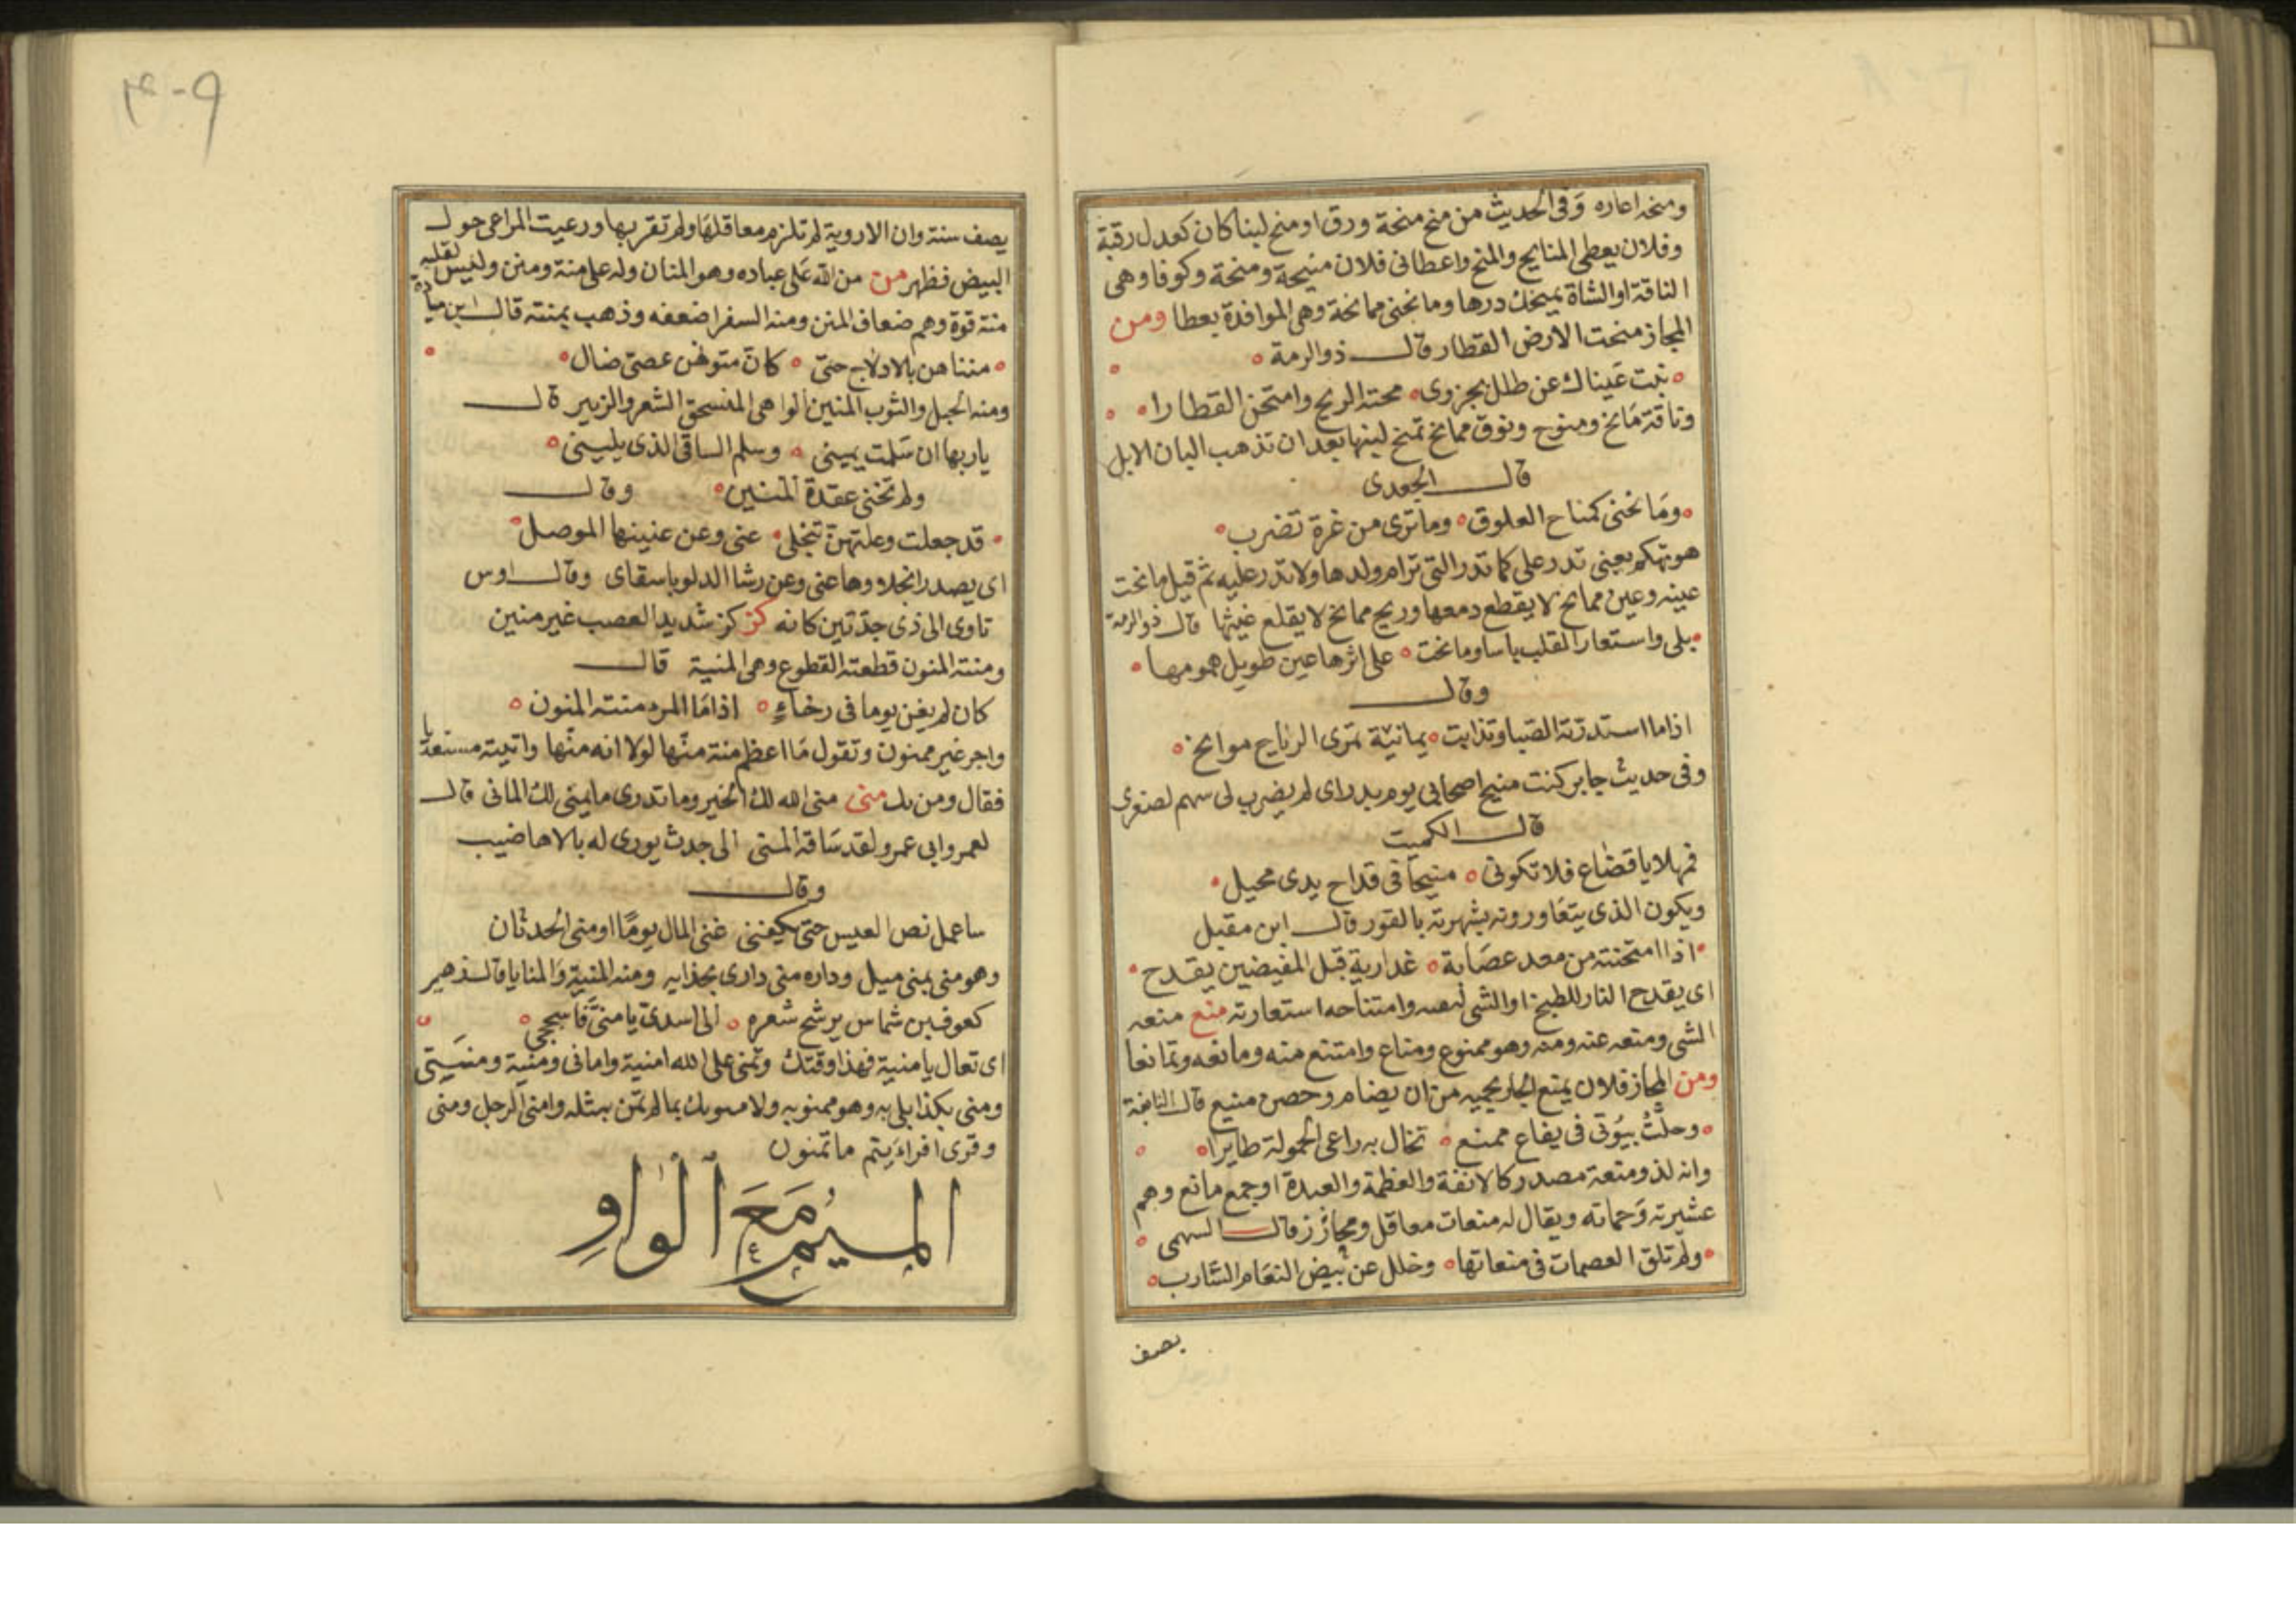 ومنحه اعاره وفى الحديث من منح منحة ورق او منح لبنا كان كعدل رقبة
وفلان يعطى المنايح والمنح واعطانى فلان منيحة ومنحة وكوفا وهى
الناقة او الشاة يمنحك درها ومانحنى ممانحة وهى الموافدة بعطا ومن
المجاز منحت الارض القطار قال ذو الرمة
نبت عيناك عن طلل بجزوى محته الريح وامتحن القطارا
وناقة مانح ومنوح ونوق ممانح تمنح لبنها بعد ان تذهب البان الابل
قال الجعدى
ومانحنى كمناح العلوق وما ترى من غرة تضرب
هو تهكم يعنى تدر على كما تدر التى ترام ولدها ولا تدر عليه ثم قيل مانحت
عينه وعين ممانح لا يقطع دمعها وريح ممانح لا يقلع غيثها قال ذو الرمة
بلى واستعار القلب ياسا ومانحت على اثرها عين طويل همومها
وقال
اذا ما استدرته الصبا وتذابت يمانية تمرى الرياح موانح
وفى حديث جابر كنت منيح اصحابى يوم بدر اى لم يضرب لى سهم لصغرى
قال الكميت
فمهلا يا قضاع فلا تكونى منيحا فى قداح يدى محيل
ويكون الذى يتعاورونه بشهرته بالفور قال ابن مقبل
اذا امتحنته من معد عصابة غدا ربه قبل المفيضين يقدح
اى يقدح النار للطبخ او الشى وامتناحه استعارته منع منعه
الشى ومنعه عنه ومنه وهو ممنوع ومناع وامتنع منه ومانعه وتمانعا
ومن المجاز فلان يمنع الجار يحميه من ان يضام وحصن منيع قال النابغة
وحلت بيوتى فى يفاع ممنع تخال به راعى الحمولة طايرا
وانه لذو منعة مصدر كالانفة والعظمة والعبدة او جمع مانع وهم
عشيرته وحماته ويقال له منعات معاقل ومحارز قال السهمى
ولم تلق العصمات فى منعاتها وخلل عن بيض النعام السارب
يصف
٤٠٩
يصف سنة وان الاروية لم تلزم معاقلها ولم تقر بها ورعيت المراعى حول
البيض فظهر من من الله على عباده وهو المنان وله على منة ومنن وليس لقلبه
منة قوة وهم ضعاف المنن ومنه السفر اضعفه وذهب بمنته قال ابن ميادة
مننا هن بالادلاج حتى كان متونهن عصى ضال
ومنه الحبل والثوب المنين الواهى المنسحق الشعر والزبير قال
يا ربها ان سلمت يمينى وسلم الساقى الذى يلينى
ولم تخنى عقدة المنين وقال
قد جعلت وعلتهن تنجلى عنى وعن عنينها الموصل
اى يصدر انجلا وها عنى وعن رشا الدلو باسقاى وقال اوس
تاوى الى ذى جدتين كانه كز كز شديد العصب غير منين
ومنته المنون قطعته القطوع وهى المنية قال
كان لم يغن يوما فى رخاء اذا ما المرء منته المنون
واجر غير ممنون وتقول ما اعظم منة منها لولا انه منها واتيته مستعديا
فقال ومن بك منى منى الله لك الخير وما تدرى ما يمنى لك المانى قال
لعمر وابى عمرو لقد ساقه المنى الى جدث يورى له بالاهاضيب
وقال
ساعمل نص العيس حتى يكفنى غنى المال يوما او منى الحدثان
وهو منى بمنى ميل وداره منى دارى بحذايه ومنه المنية والمنايا قال زهير
كعوف بن شماس يرشح شعره الى اسدى يا منى فاسجحى
اى تعال يا منية فهذا وقتك وتمنى على الله امنية وامانى ومنية ومنيتى
ومنى بكذا بلى به وهو ممنو به ولامنونك بما لم تمن بمثله وامنى الرجل ومنى
وقرى افرايتم ما تمنون
الميم مع الواو